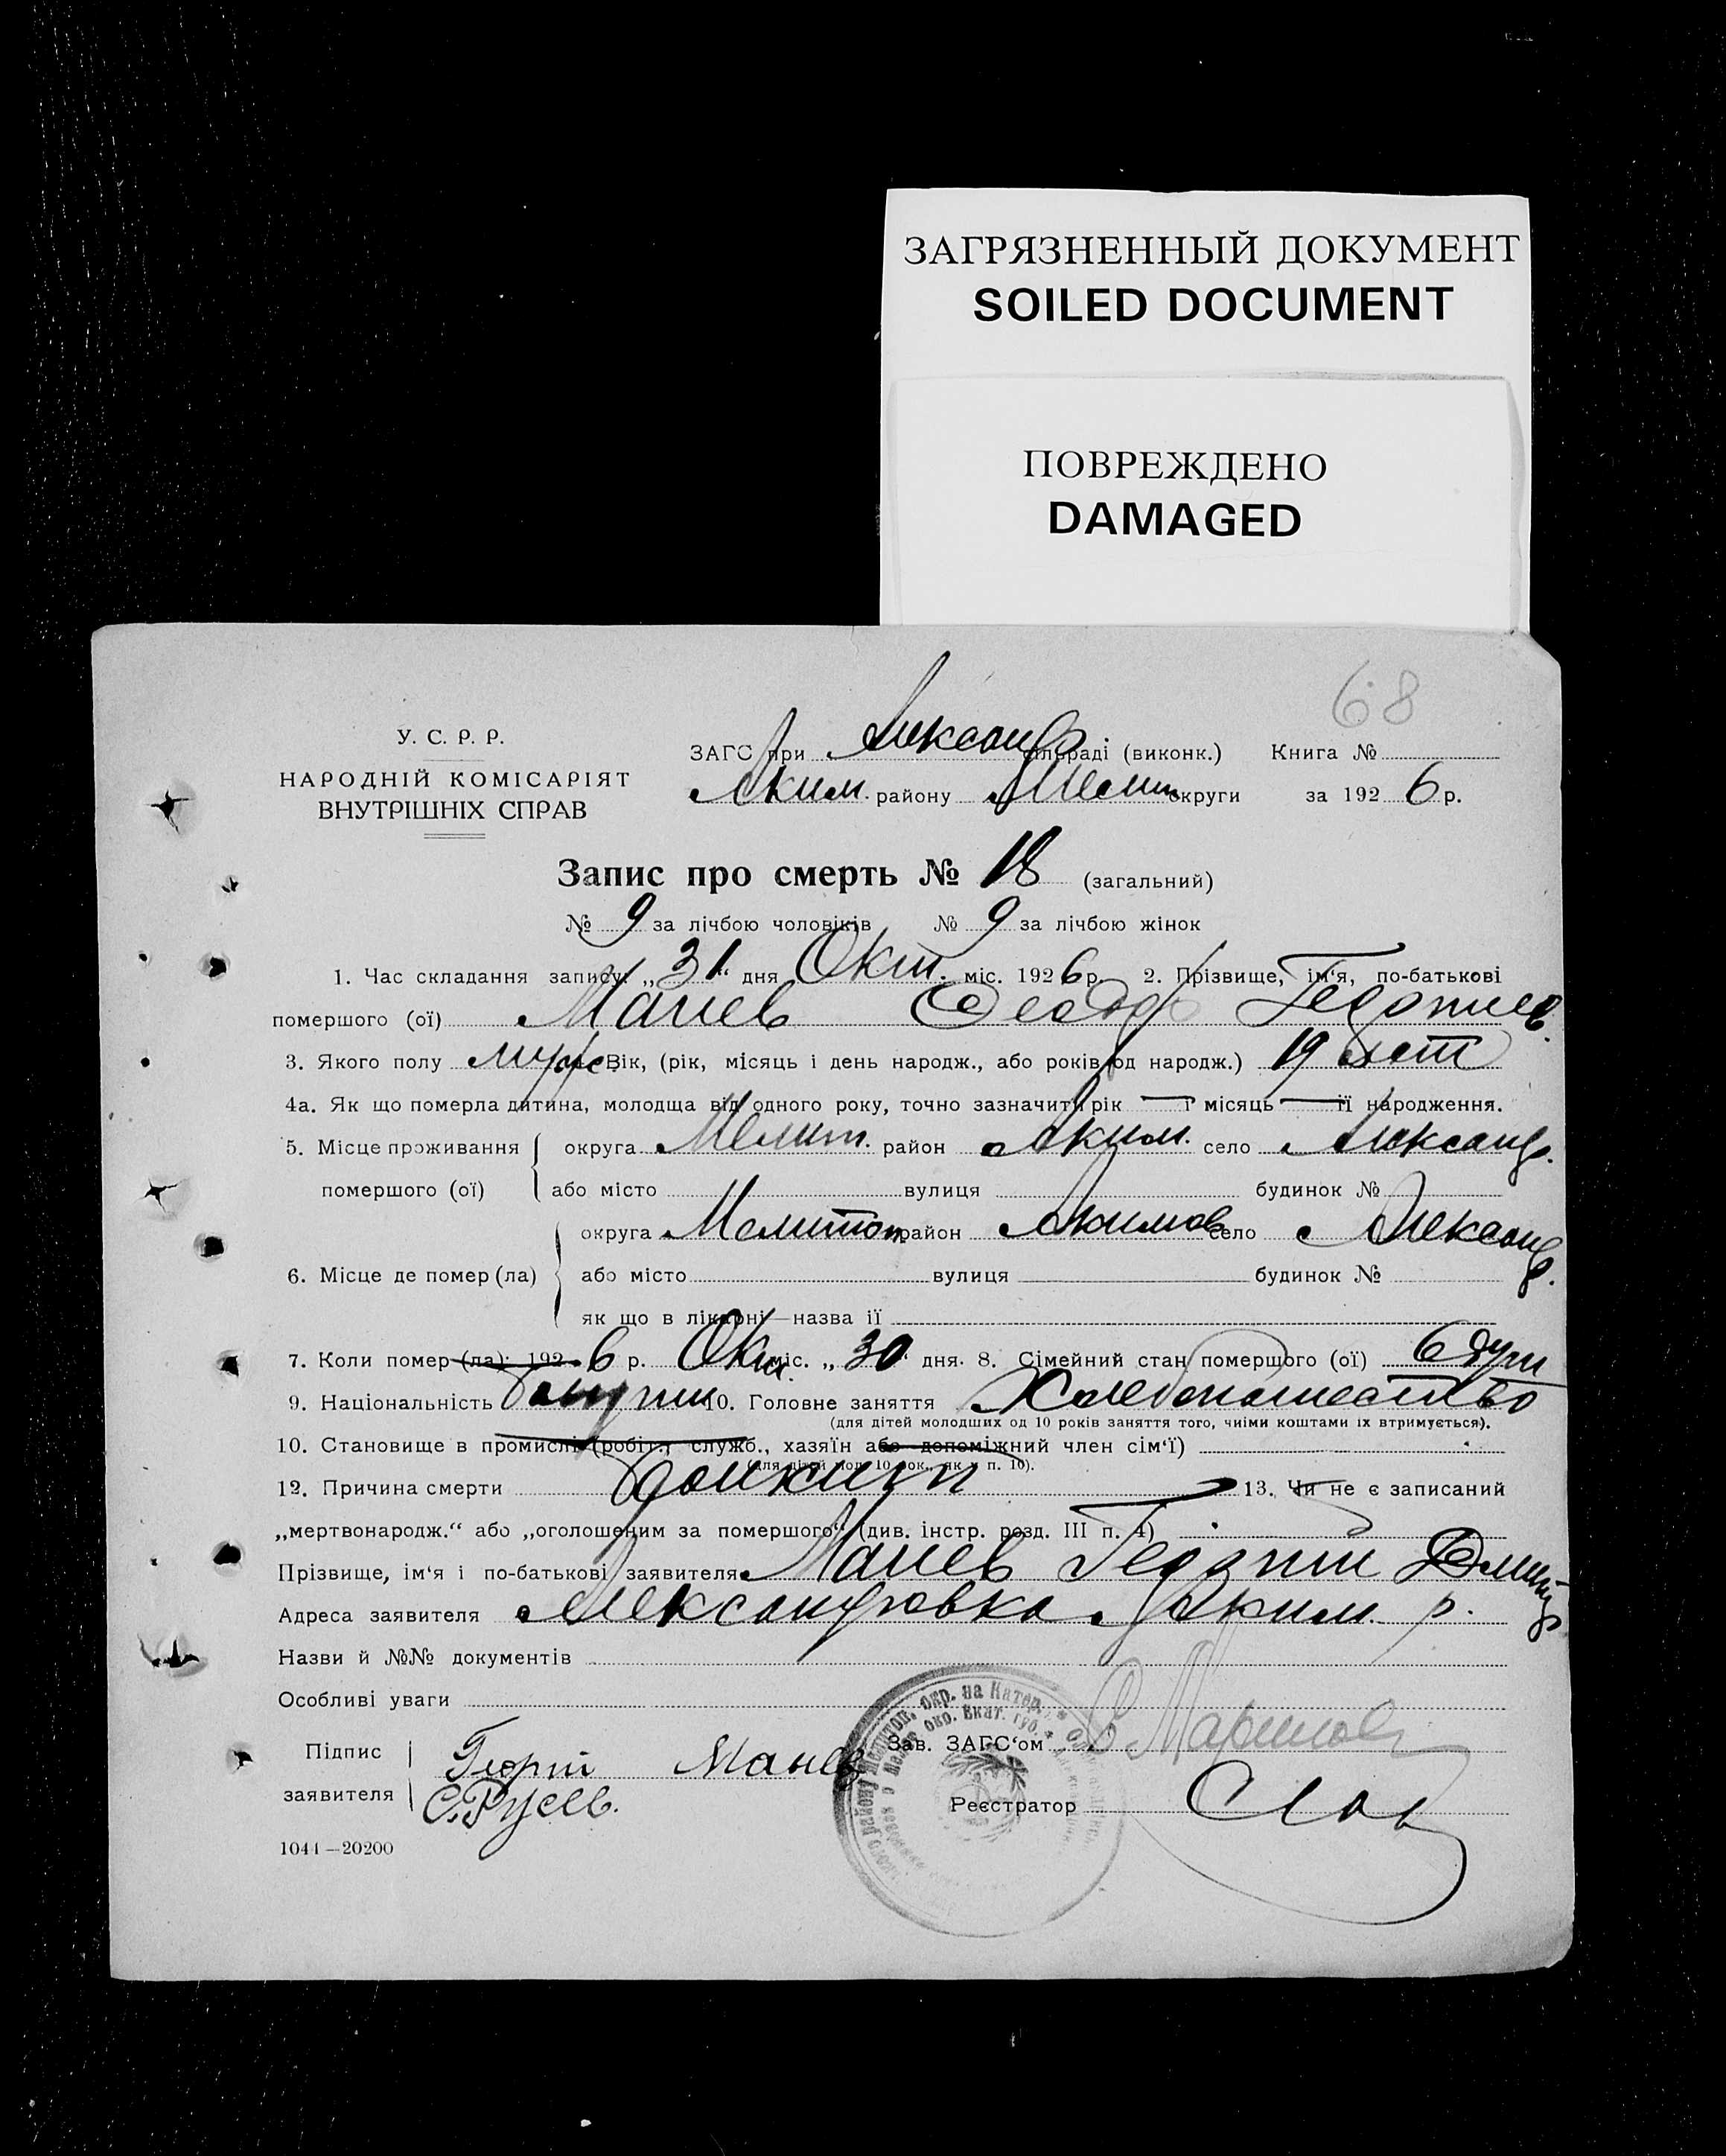 ЗАГРЯЗНЕННЫЙ ДОКУМЕНТ
SOILED DOCUMENT
ПОВРЕЖДЕНО
DAMAGED
68
У. С. Р. Р.
НАРОДНІЙ КОМІСАРІЯТ
ВНУТРІШНІХ СПРАВ
ЗАГС при Александр сільраді (виконк.) Книга №
Аким. району Мелит округи за 192 6 р.
Запис про смерть № 18 (загальний)
№ 9 за лічбою чоловіків № 9 за лічбою жінок
1. Час складання запису: „31“ дня Окт. міс. 1926 р. 2. Прізвище, ім‘я, по-батькові
помершого (ої) Манев Феодор Георгиев.
3. Якого полу муж. Вік, (рік, місяць і день народж., або років од народж.) 19 лет
4а. Як що померла дитина, молодща від одного року, точно зазначити рік — і місяць — її народження.
5. Місце проживання помершого (ої) округа Мелит. район Аким. село Александр.
або місто вулиця будинок №
6. Місце де помер (ла) округа Мелитоп район Акимов село Александр.
або місто вулиця будинок №
як що в лікарні—назва її
7. Коли помер (ла): 192 6 р. Окт. міс. „30“ дня. 8. Сімейний стан помершого (ої)
9. Національність 10. Головне заняття Хлебопашество
(для дітей молодших од 10 років заняття того, чиїми коштами їх втримується).
10. Становище в промислі (робіт., служб., хазяїн або допоміжний член сім‘ї)
(для дітей мол. 10 рок., як у п. 10).
12. Причина смерти 13. Чи не є записаний
„мертвонародж.“ або „оголошеним за помершого“ (див. інстр. розд. III п. 4)
Прізвище, ім‘я і по-батькові заявителя Манев Георгий Дмитр
Адреса заявителя Александровка Аким. р.
Назви й №№ документів
Особливі уваги
Підпис заявителя Георгій Манев
С. Русев.
Зав. ЗАГС‘ом
Реєстратор
1044—20200